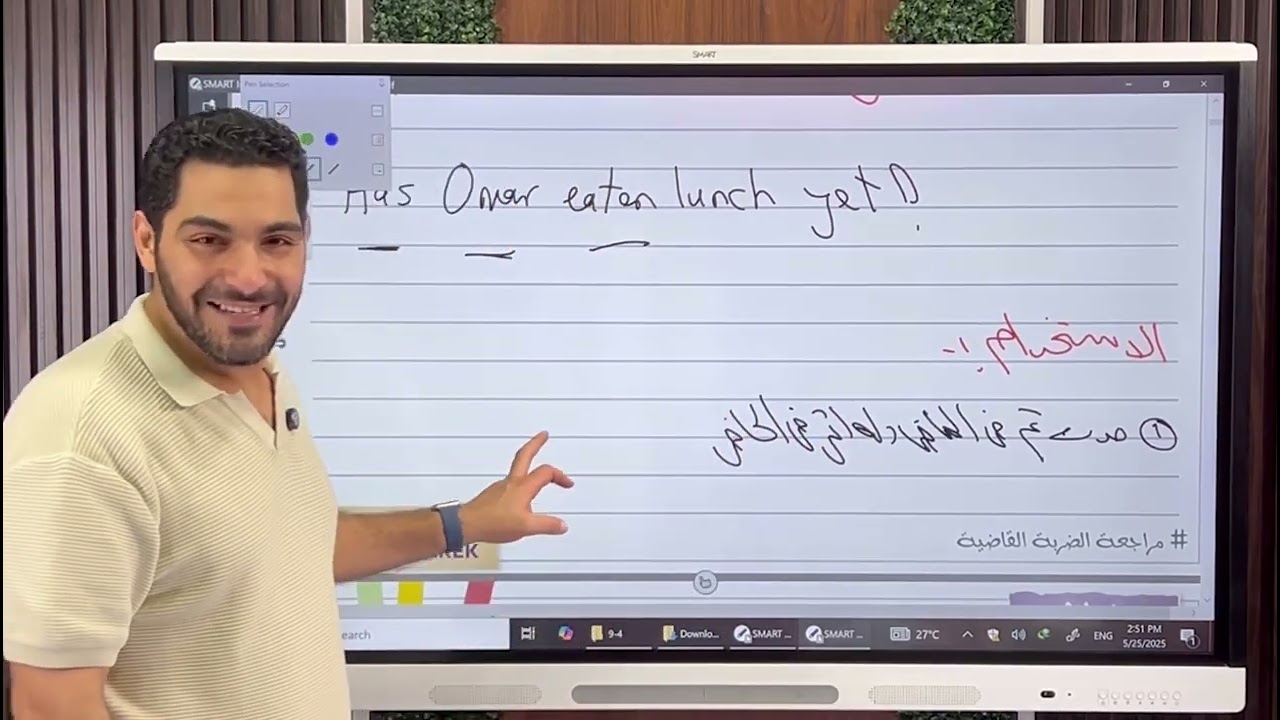 SMART
SMART
Pen Selection
Has Omar eaten lunch yet?
الاستخدام :-
① حدث تم في الماضي وله اثر في الحاضر
# مراجعة الضربة القاضية
REK
earch
9-4
Downlo...
SMART ...
SMART ...
27°C
ENG
2:51 PM
5/25/2025